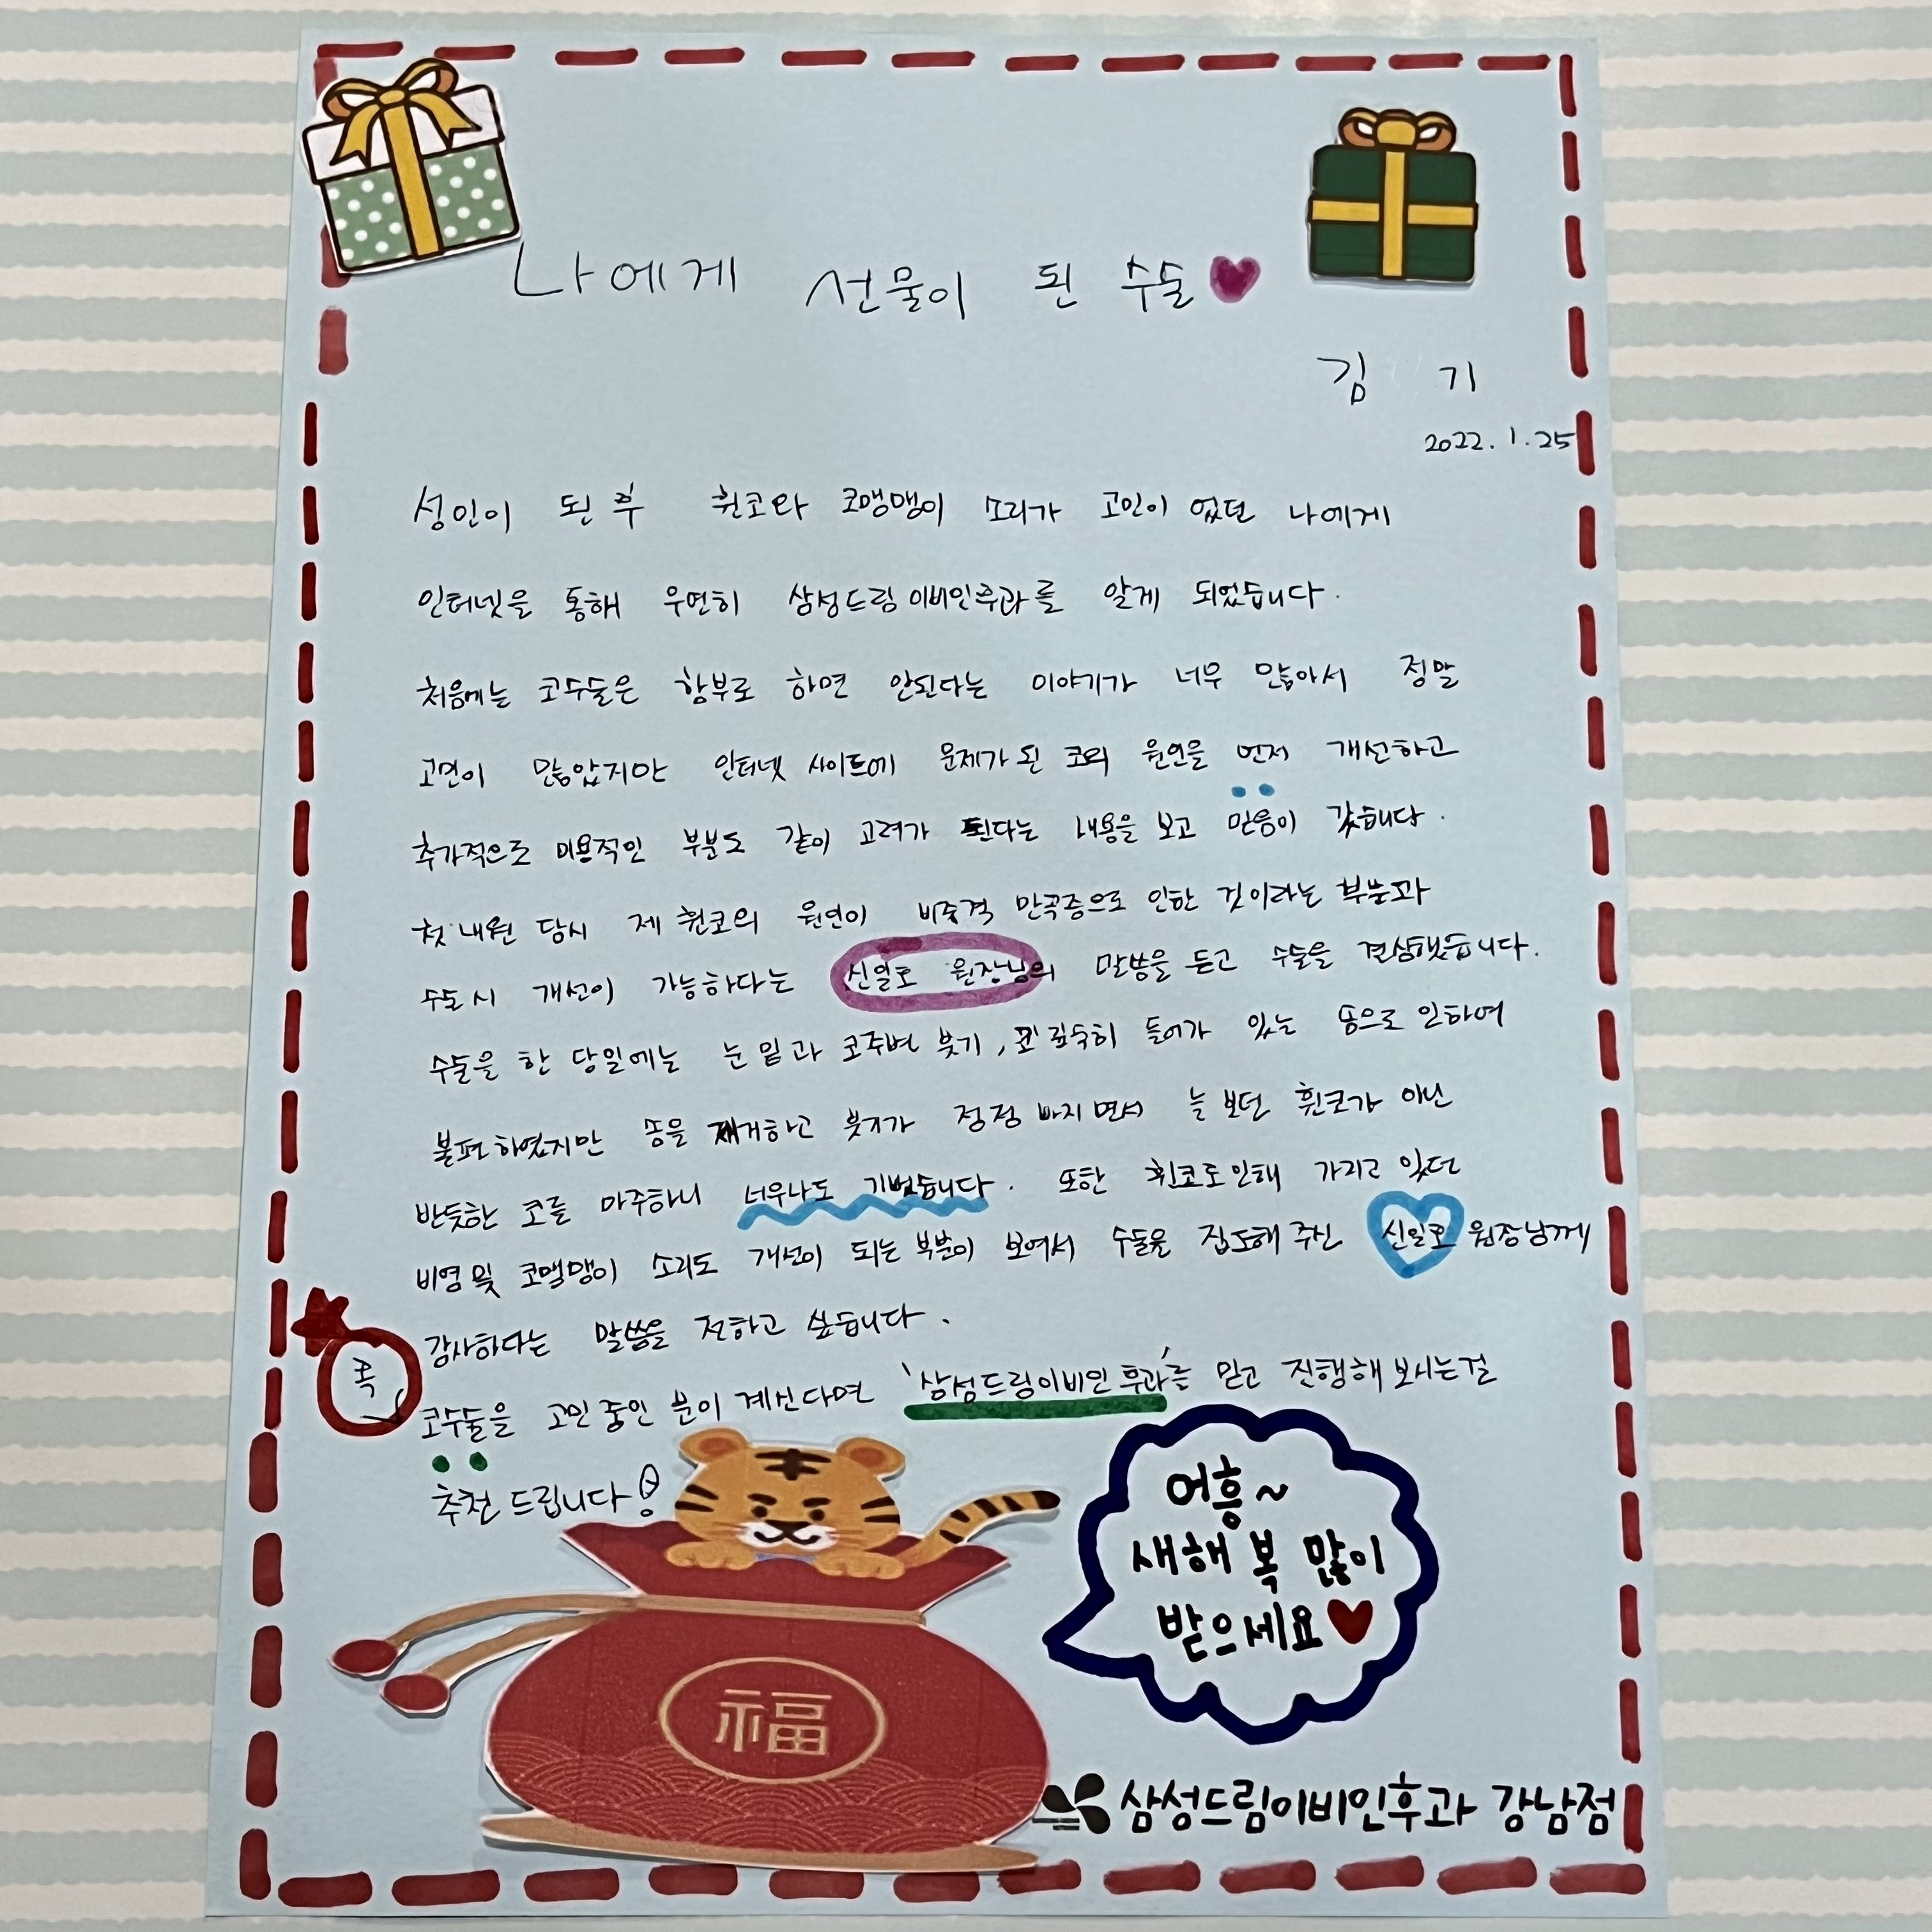 나에게 선물이 된 수술
김 기
2022. 1. 25
성인이 된 후 휜코와 코맹맹이 소리가 고민이 었던 나에게
인터넷을 통해 우연히 삼성드림이비인후과를 알게 되었습니다.
처음에는 코수술은 함부로 하면 안된다는 이야기가 너무 많아서 정말
고민이 많았지만 인터넷 사이트에 문제가 된 코의 원인을 먼저 개선하고
추가적으로 미용적인 부분도 같이 고려가 된다는 내용을 보고 믿음이 갔습니다.
첫 내원 당시 제 휜코의 원인이 비중격 만곡증으로 인한 것이라는 부분과
수술시 개선이 가능하다는 신일호 원장님의 말씀을 듣고 수술을 결심했습니다.
수술을 한 당일에는 눈 밑과 코주변 붓기, 코 깊숙히 들어가 있는 솜으로 인하여
불편하였지만 솜을 제거하고 붓기가 점점 빠지면서 늘 보던 휜코가 아닌
반듯한 코를 마주하니 너무나도 기뻤습니다. 또한 휜코로인해 가지고 있던
비염 및 코맹맹이 소리도 개선이 되는 부분이 보여서 수술을 집도해 주신 신일호 원장님께
감사하다는 말씀을 전하고 싶습니다.
혹
코수술을 고민 중인 분이 계신다면 '삼성드림이비인후과'를 믿고 진행해 보시는걸
추천 드립니다!
어흥~
새해 복 많이
받으세요
福
삼성드림이비인후과 강남점